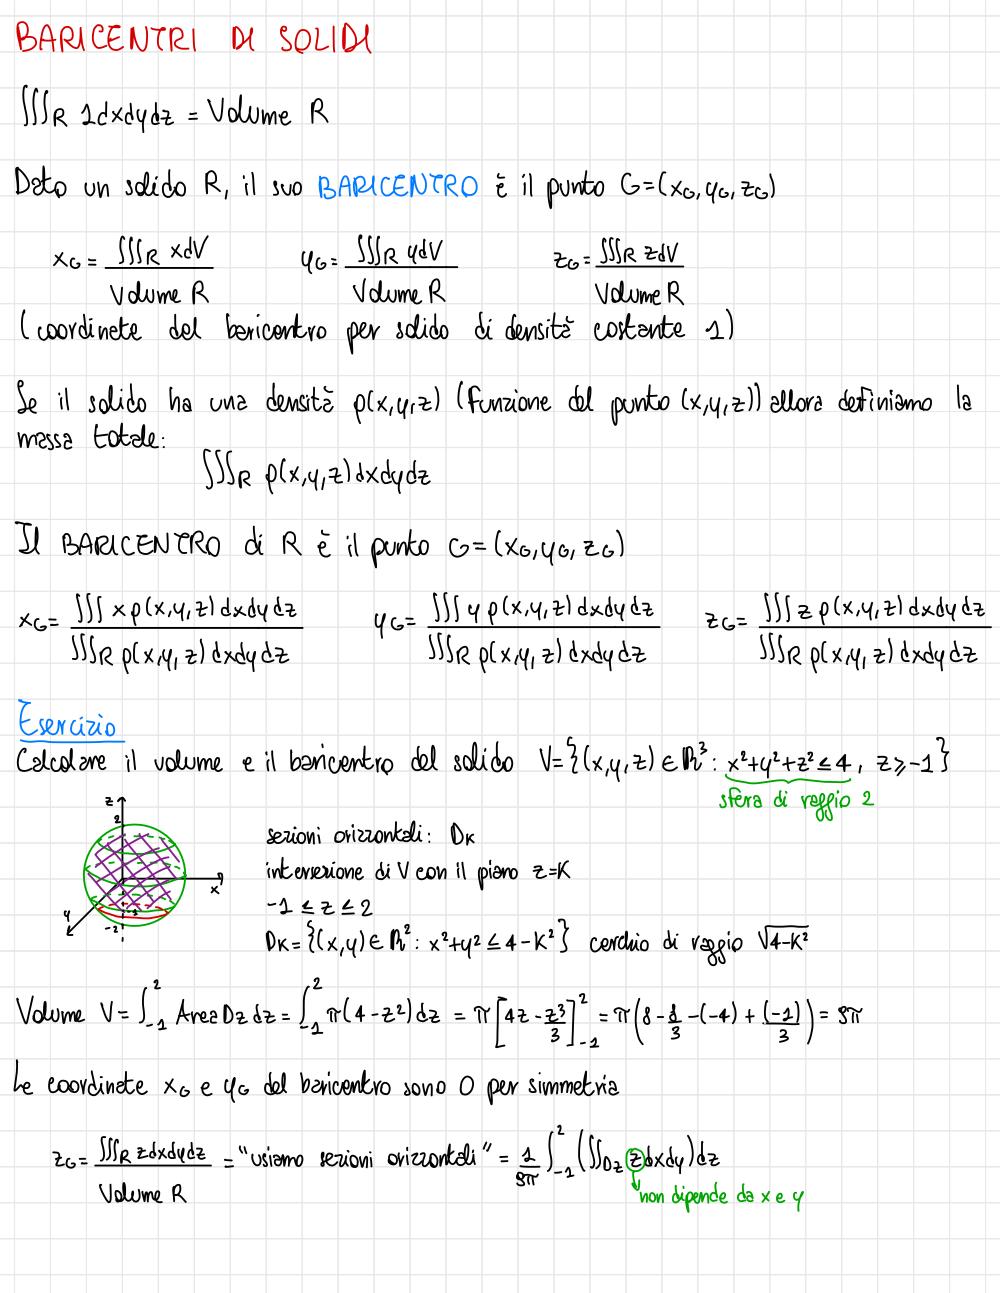 BARICENTRI DI SOLIDI
∭_R 1dxdydz = Volume R
Dato un solido R, il suo BARICENTRO è il punto G=(x_G, y_G, z_G)
x_G = ∭_R xdV / Volume R    y_G = ∭_R ydV / Volume R    z_G = ∭_R zdV / Volume R
(coordinate del baricentro per solido di densità costante 1)
Se il solido ha una densità ρ(x,y,z) (funzione del punto (x,y,z)) allora definiamo la
massa totale:
∭_R ρ(x,y,z)dxdydz
Il BARICENTRO di R è il punto G=(x_G, y_G, z_G)
x_G = ∭ xρ(x,y,z)dxdydz / ∭_R ρ(x,y,z)dxdydz    y_G = ∭ yρ(x,y,z)dxdydz / ∭_R ρ(x,y,z)dxdydz    z_G = ∭ zρ(x,y,z)dxdydz / ∭_R ρ(x,y,z)dxdydz
Esercizio
Calcolare il volume e il baricentro del solido V={(x,y,z)∈ℝ³: x²+y²+z²≤4, z≥-1}
sfera di raggio 2
z
2
x
y
-1
-2
sezioni orizzontali: D_K
intersezione di V con il piano z=K
-1 ≤ z ≤ 2
D_K={(x,y)∈ℝ²: x²+y²≤4-K²} cerchio di raggio √(4-K²)
Volume V = ∫_{-1}^{2} Area D_z dz = ∫_{-1}^{2} π(4-z²)dz = π[4z - z³/3]_{-1}^{2} = π(8 - 8/3 -(-4) + (-1)/3) = 9π
Le coordinate x_G e y_G del baricentro sono 0 per simmetria
z_G = ∭_R zdxdydz / Volume R = "usiamo sezioni orizzontali" = 1/9π ∫_{-1}^{2} (∬_{D_z} zdxdy)dz
non dipende da x e y